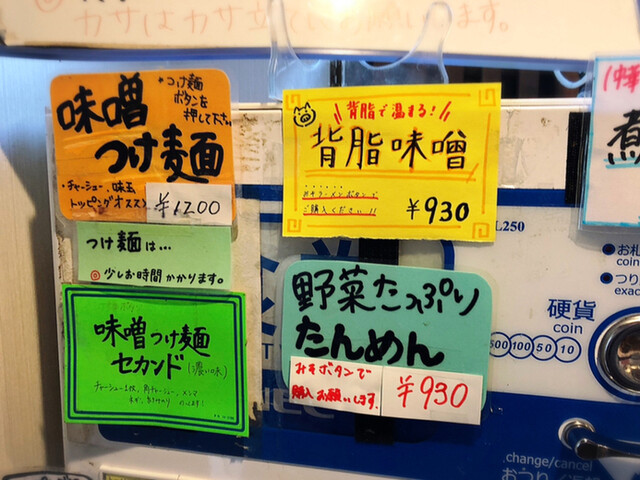 カサはカサ立てにお願いします。
味噌
つけ麺
・つけ麺
ボタンを
押して下さい
・チャーシュー、味玉
トッピングオススメ
¥1200
つけ麺は…
◎少しお時間かかります。
味噌つけ麺
セカンド(濃い味)
背脂で温まる!
背脂味噌
ご購入ください!!
¥930
野菜たっぷり
たんめん
みそボタンで
購入お願いします。
¥930
L250
お札
coin
つり
exac
硬貨
coin
500 100 50 10
change/cancel
おつり/返
中華
煮